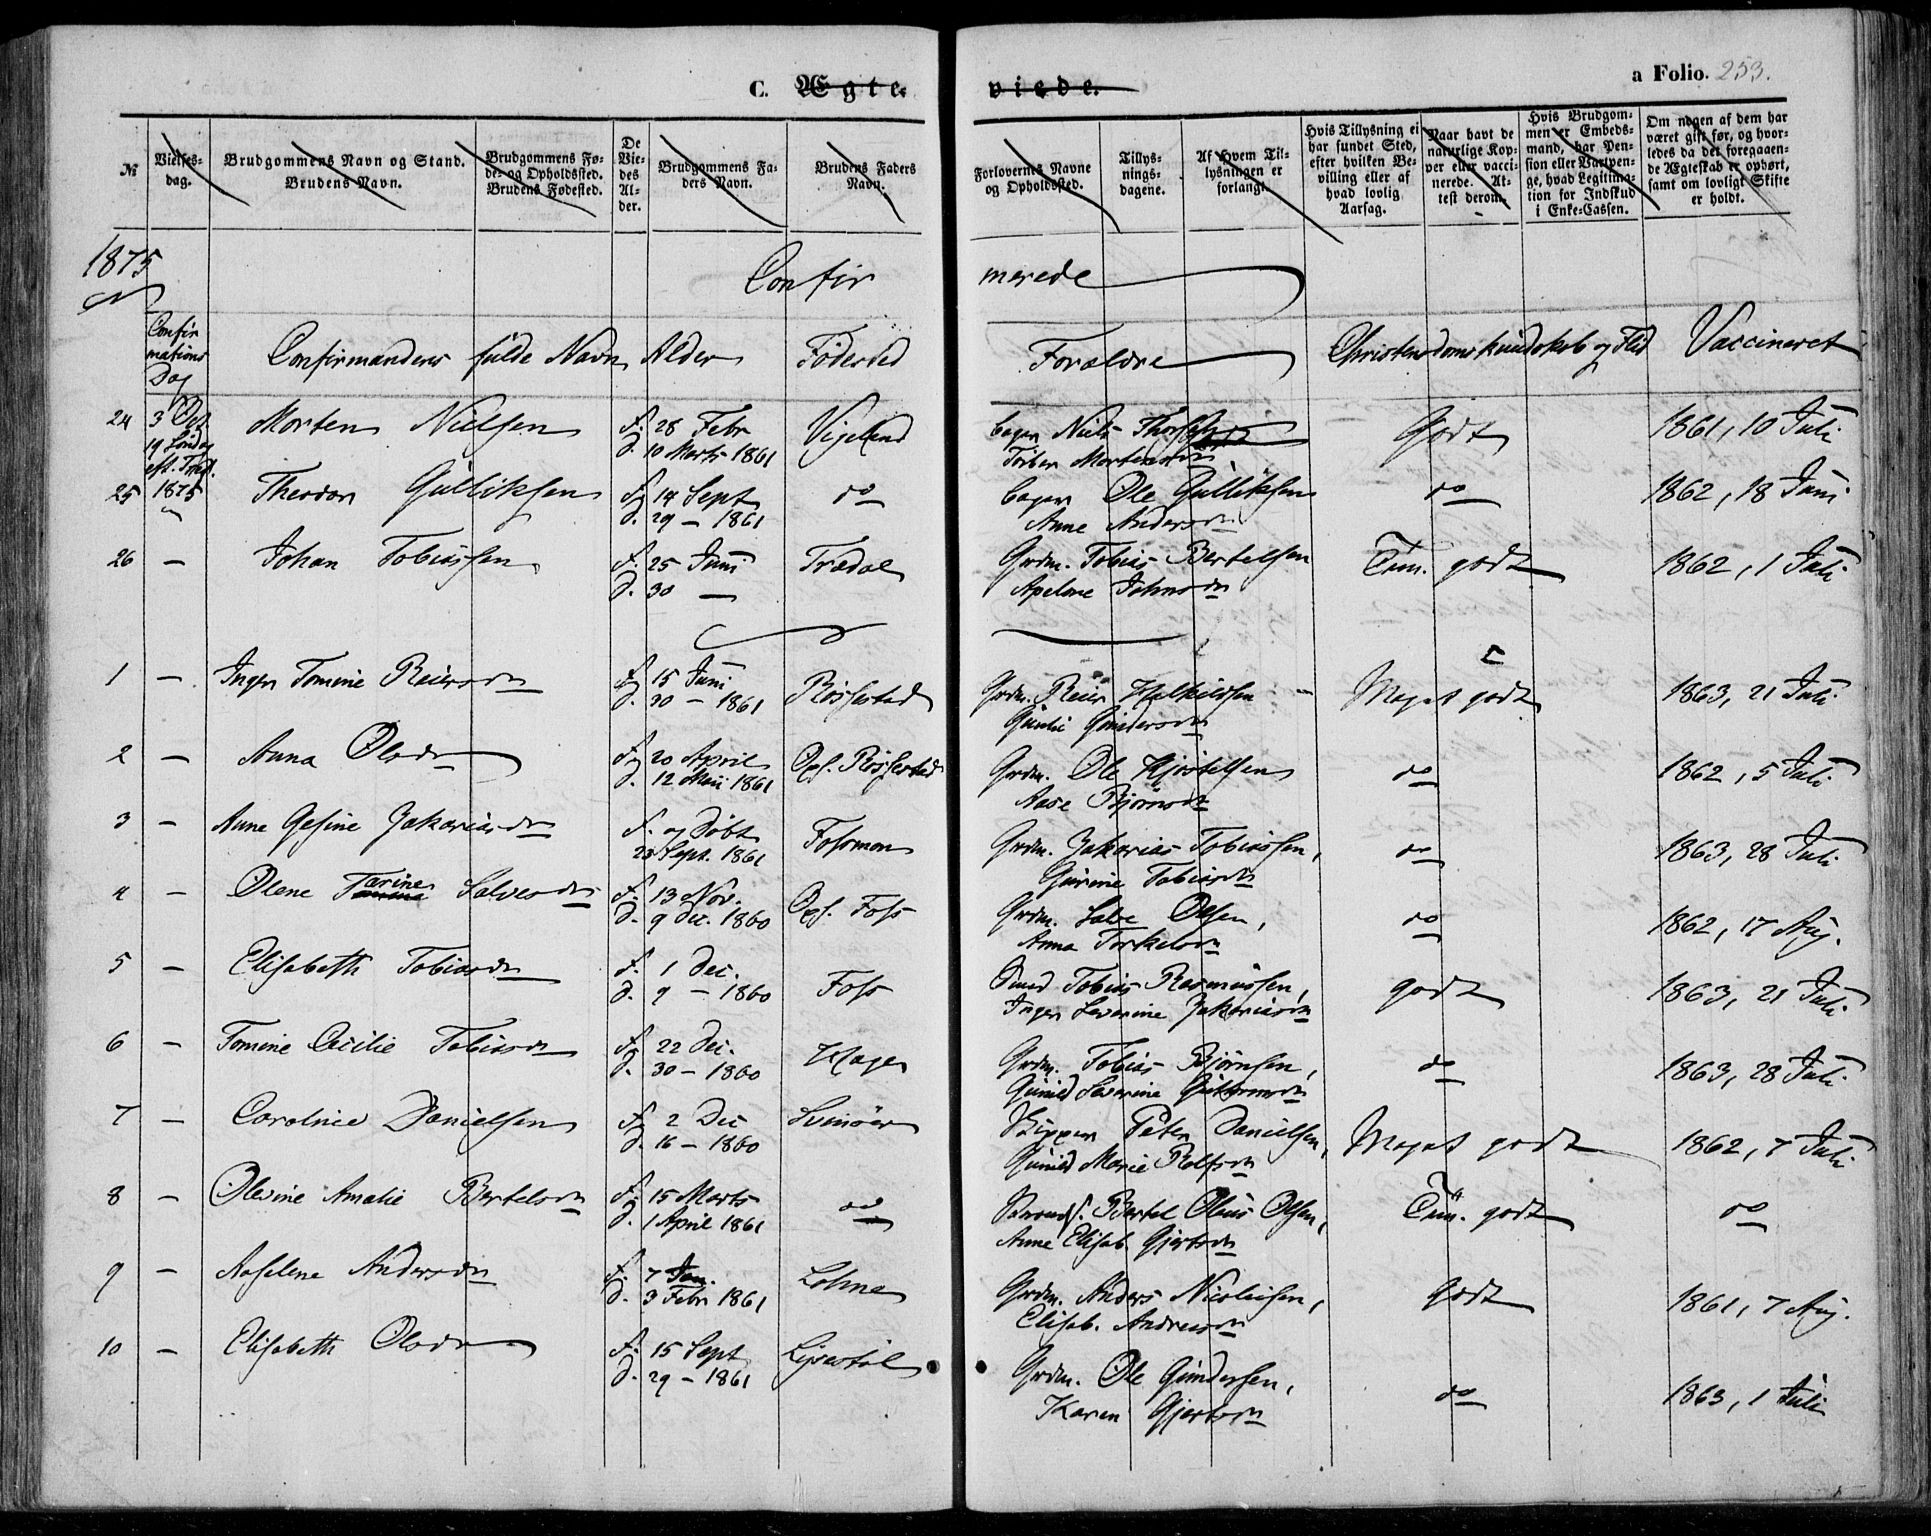 C. Ægte-
viede.
a Folio. 253.
№
Vielses-
dag.
Brudgommens Navn og Stand.
Brudens Navn.
Brudgommens Fø-
de- og Opholdssted.
Brudens Fødested.
De
Vie-
des
Al-
der.
Brudgommens Fa-
ders Navn.
Brudens Faders
Navn.
Forlovernes Navne
og Opholdssted.
Tillys-
nings-
dagene.
Af hvem Til-
lysningen er
forlangt.
Hvis Tillysning ei
har fundet Sted,
efter hvilken Be-
villing eller af
hvad lovlig
Aarsag.
Naar havt de
naturlige Kop-
per eller vacci-
nerede. At-
test derom.
Hvis Brudgom-
men er Embeds-
mand, har Pen-
sion eller Vartpen-
ge, hvad Legitima-
tion for Indskud
i Enke-Cassen.
Om nogen af dem har
været gift før, og hvor-
ledes da det foregaaen-
de Ægteskab er ophørt,
samt om lovligt Skifte
er holdt.
1875
Confir
merede
Confir
mations
Dag
Confirmandens fulde Navn
Alder
Födested
Forældre
Christendomskundskab og Flid
Vaccineret
24 3 Oct
19 Søndag
eft. Tref.
1875
Morten Nielsen
f. 28 Febr
d. 10 Marts 1861
Vigeland
Niels
Torber Mortensdr
Godt
1861, 10 Juli
25 Theodor Gulliksen
f. 14 Sept
d. 29 – 1861
do
Ole Gulliksen
Anne Andersdr
do
1862, 18 Juni
26 – Johan Tobiassen
f. 25 Juni
d. 30 –
Trædal
Grdm. Tobias Bertelsen
Apelone Johnsdr
Tem. godt
1862, 1 Juli
1 – Inger Tomine Reiersdr
f. 15 Juni
d. 30 – 1861
Røssestad
Grdm. Reier Halkildsen
Gundersdr
Meget godt
1863, 21 Juli
2 – Anna Olsdr
f. 20 April
d. 12 Mai 1861
Opf. Røssestad
Grdm. Ole Kjøstelsen
Aase Bjørnsdr
do
1862, 5 Juli
3 – Anne Gesine Zakariasdr
f. og Döbt
23 Sept. 1861
Fossmon
Grdm. Zakarias Tobiassen,
Gurine Tobiasdr
do
1863, 28 Juli
4 – Olene Tarine Salvesdr
f. 13 Nov.
d. 9 Dec. 1860
Opf. Foss
Grdm. Salve Olsen,
Anna Torkelsdr
do
1862, 17 Aug.
5 – Elisabeth Tobiasdr
f. 1 Dec.
d. 9 – 1860
Foss
Tobias Rasmussen,
Inger Severine Zakariasdr
godt
1863, 21 Juli
6 – Tomine Cecilie Tobiasdr
f. 22 Dec.
d. 30 – 1860
Hage
Grdm. Tobias Bjørnsen,
Gunild Severine
do
1863, 28 Juli
7 – Caroline Danielsen
f. 2 Dec
d. 16 – 1860
Svinöer
Skipper Peter Danielsen,
Gunild Marie Rolfsdr
Meget godt
1862, 7 Juli
8 – Olevine Amalie Bertelsdr
f. 15 Marts
d. 1 April 1861
do
Strands. Bertel Oleus Olsen,
Anne Elisab. Gjertsdr
Tem. godt
do
9 – Aaselene Andersdr
f. 7 Jan.
d. 3 Febr 1861
Lohne
Grdm. Anders Nicolaisen,
Elisab. Andreasdr
Godt
1861, 7 Aug.
10 – Elisabeth Olsdr
f. 15 Sept
d. 29 – 1861
Grdm. Ole Gundersen,
Karen Gjertsdr
do
1863, 1 Juli